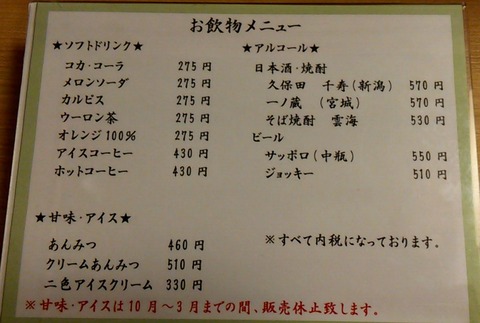 お飲物メニュー
★ソフトドリンク★
コカ・コーラ 275 円
メロンソーダ 275 円
カルピス 275 円
ウーロン茶 275 円
オレンジ100% 275 円
アイスコーヒー 430 円
ホットコーヒー 430 円
★アルコール★
日本酒・焼酎
久保田 千寿(新潟) 570 円
一ノ蔵 (宮城) 570 円
そば焼酎 雲海 530 円
ビール
サッポロ(中瓶) 550 円
ジョッキー 510 円
★甘味・アイス★
あんみつ 460 円
クリームあんみつ 510 円
二色アイスクリーム 330 円
※すべて内税になっております。
※甘味・アイスは10月～3月までの間、販売休止致します。